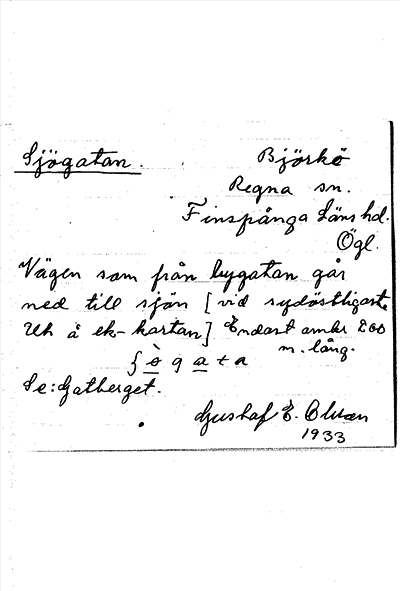 Sjögatan.
Björkö
Regna sn.
Finspånga Läns hd.
Ögl.
Vägen som från bygatan går
ned till sjön [vid sydöstligaste
Uh å ek-kartan] Endast omkr 200
m. lång.
Se: Gatberget.
Gustaf E. Olsson
1933